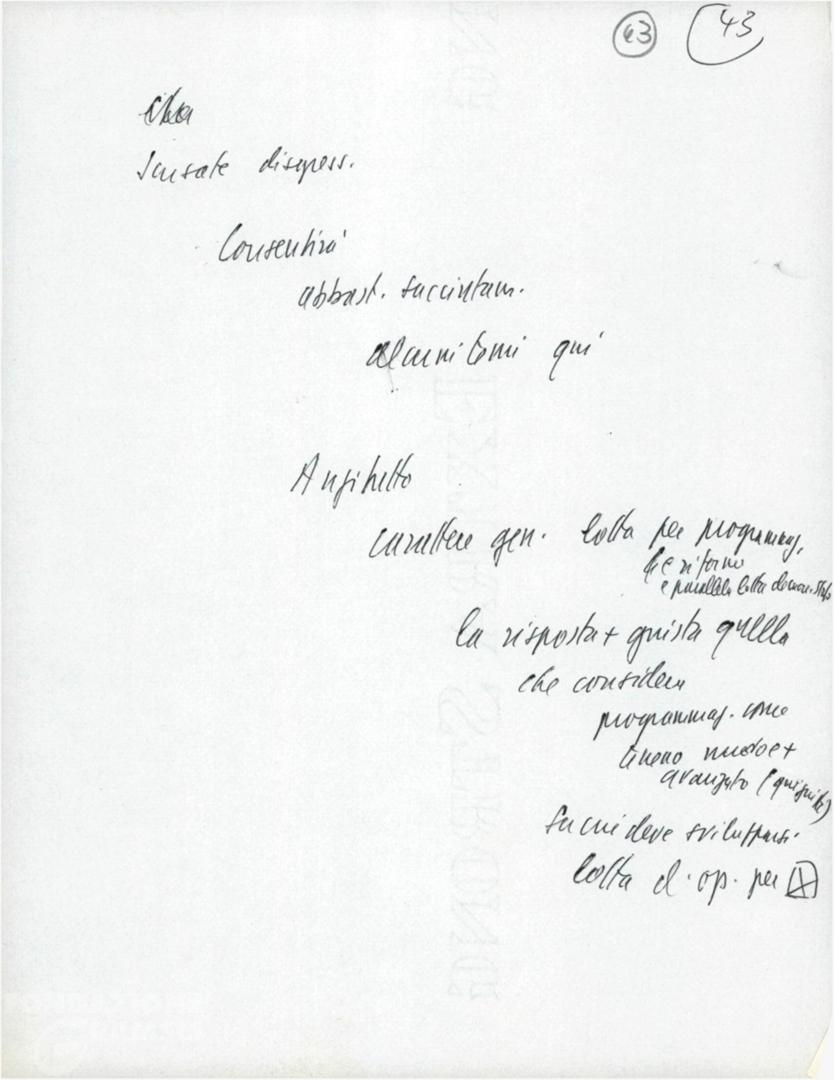 43 43
Scusate disgress.
Consentirà
abbast. succintam.
alcuni temi qui
Anzitutto
carattere gen. lotta per programmaz.
e riforme
e parallela lotta
la risposta + giusta quella
che considera
programmaz. come
terreno nuovo e +
avanzato
su cui deve svilupparsi
lotta cl. op. per